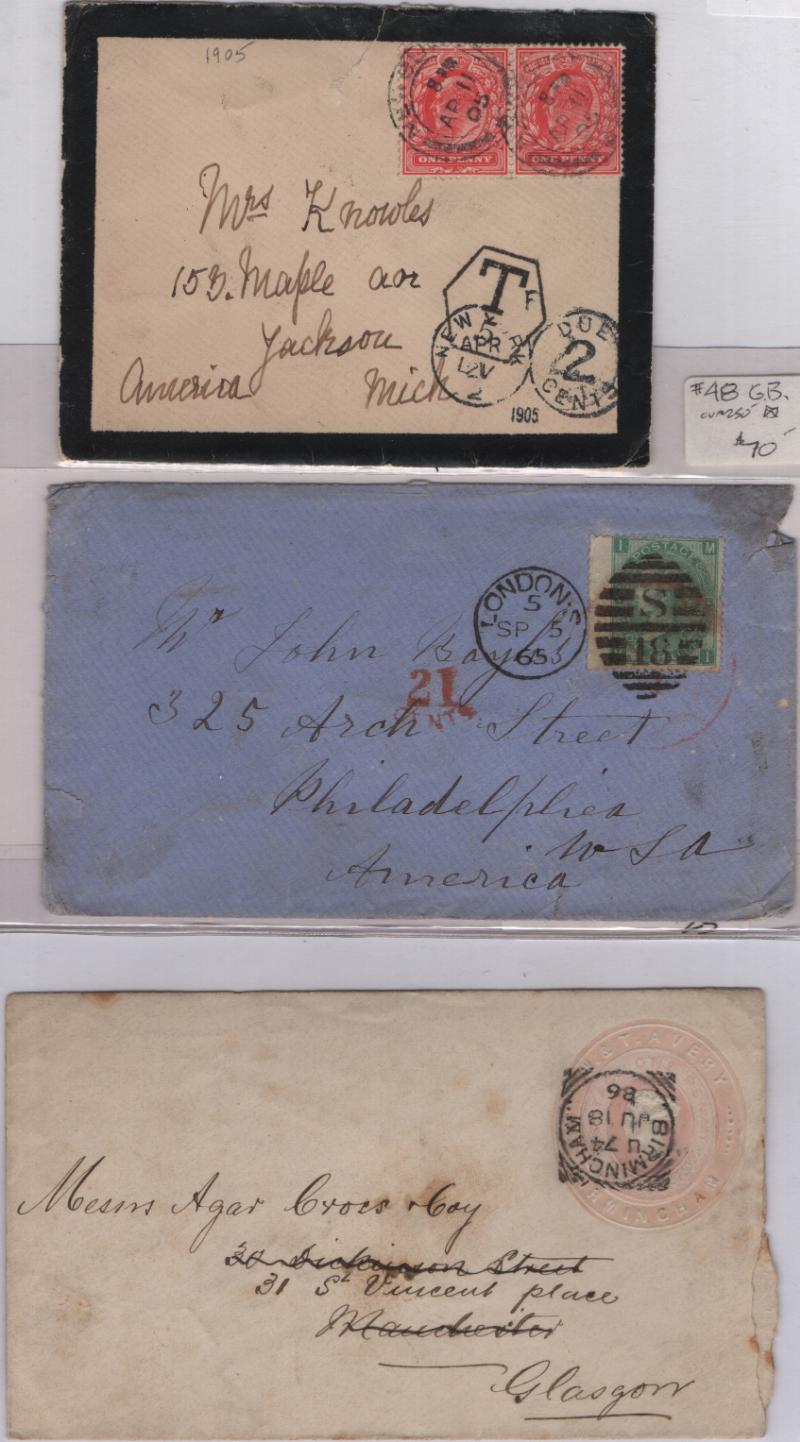 1905
AP 11
05
AP 11
ONE PENNY
ONE PENNY
Mrs Knowles
153. Maple avr
Jackson
America Mich
T
F
NEW YORK
5
APR
12V
2
1905
DUE
2
CENTS
#48 G.B.
$70
I M
POSTAGE
S
18
I
LONDON·S
5
SP 5
65
Mr John Bayliss
21
CENTS
325 Arch Street
Philadelphia
America U S A
& T. AVERY
BIRMINGHAM
BIRMINGHAM
U 74
JU 18
86
Messrs Agar Cross & Coy
30 Dickinson Street
31 St Vincent place
Manchester
Glasgow